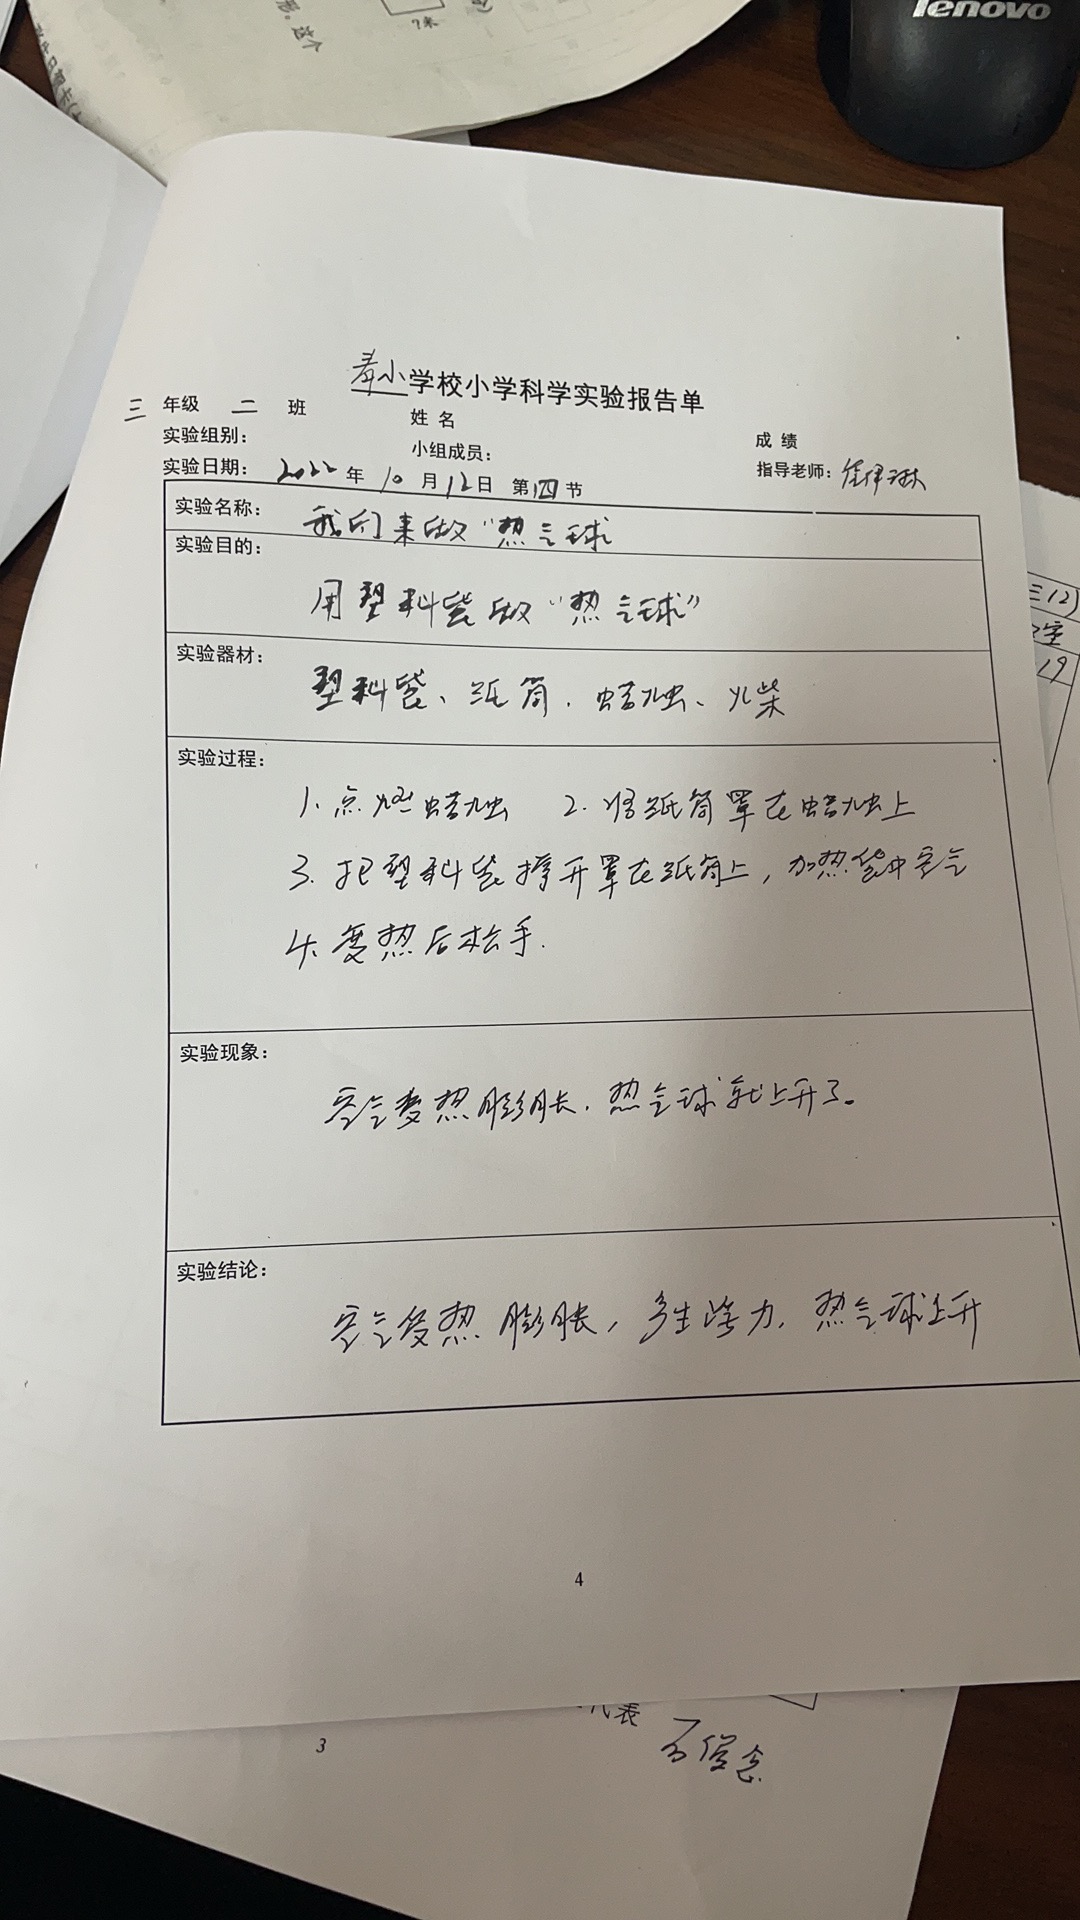 lenovo
形。这个
?米
小学校小学科学实验报告单
三 年级 二 班 姓 名 成 绩
实验组别： 小组成员： 指导老师：
实验日期： 2022 年 10 月 12 日 第四节
实验名称： 我们来做“热气球
实验目的：
用塑料袋做“热气球”
实验器材：
塑料袋、纸筒、蜡烛、火柴
实验过程：
1、点燃蜡烛 2、将纸筒罩在蜡烛上
3、把塑料袋撑开罩在纸筒上，加热袋中空气
4、变热后松手.
实验现象：
空气变热膨胀，热气球就上升了。
实验结论：
空气受热膨胀，产生浮力，热气球上升
4
三(2)
19
代表
3